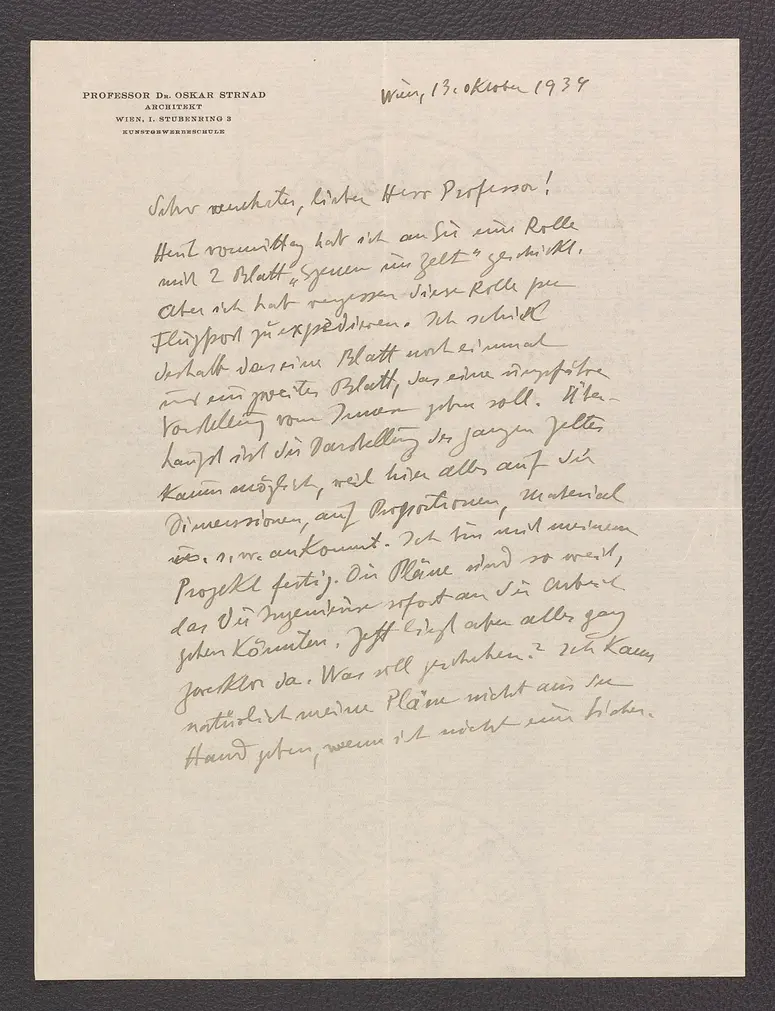 PROFESSOR DR. OSKAR STRNAD
ARCHITEKT
WIEN, I. STUBENRING 3
KUNSTGEWERBESCHULE
Wien, 13. Oktober 1934
Sehr verehrter, lieber Herr Professor!
Heut vormittag hab ich an Sie eine Rolle
mit 2 Blatt „Szenen im Zelt“ geschickt.
Aber ich hab vergessen diese Rolle per
Flugpost zu expedieren. Ich schick
deshalb das eine Blatt noch einmal
und ein zweites Blatt, das eine ungefähre
Vorstellung vom Innern geben soll. Über-
haupt ist die Darstellung des ganzen Zeltes
kaum möglich, weil hier alles auf die
Dimenssionen, auf Proportionen, Material
u. s. w. ankommt. Ich bin mit meinem
Projekt fertig. Die Pläne sind so weit,
das die Ingenieure sofort an die Arbeit
gehen könnten. Jetzt liegt aber alles ganz
zwecklos da. Was soll geschehen? Ich kann
natürlich meine Pläne nicht aus der
Hand geben, wenn ich nicht eine Sicher-